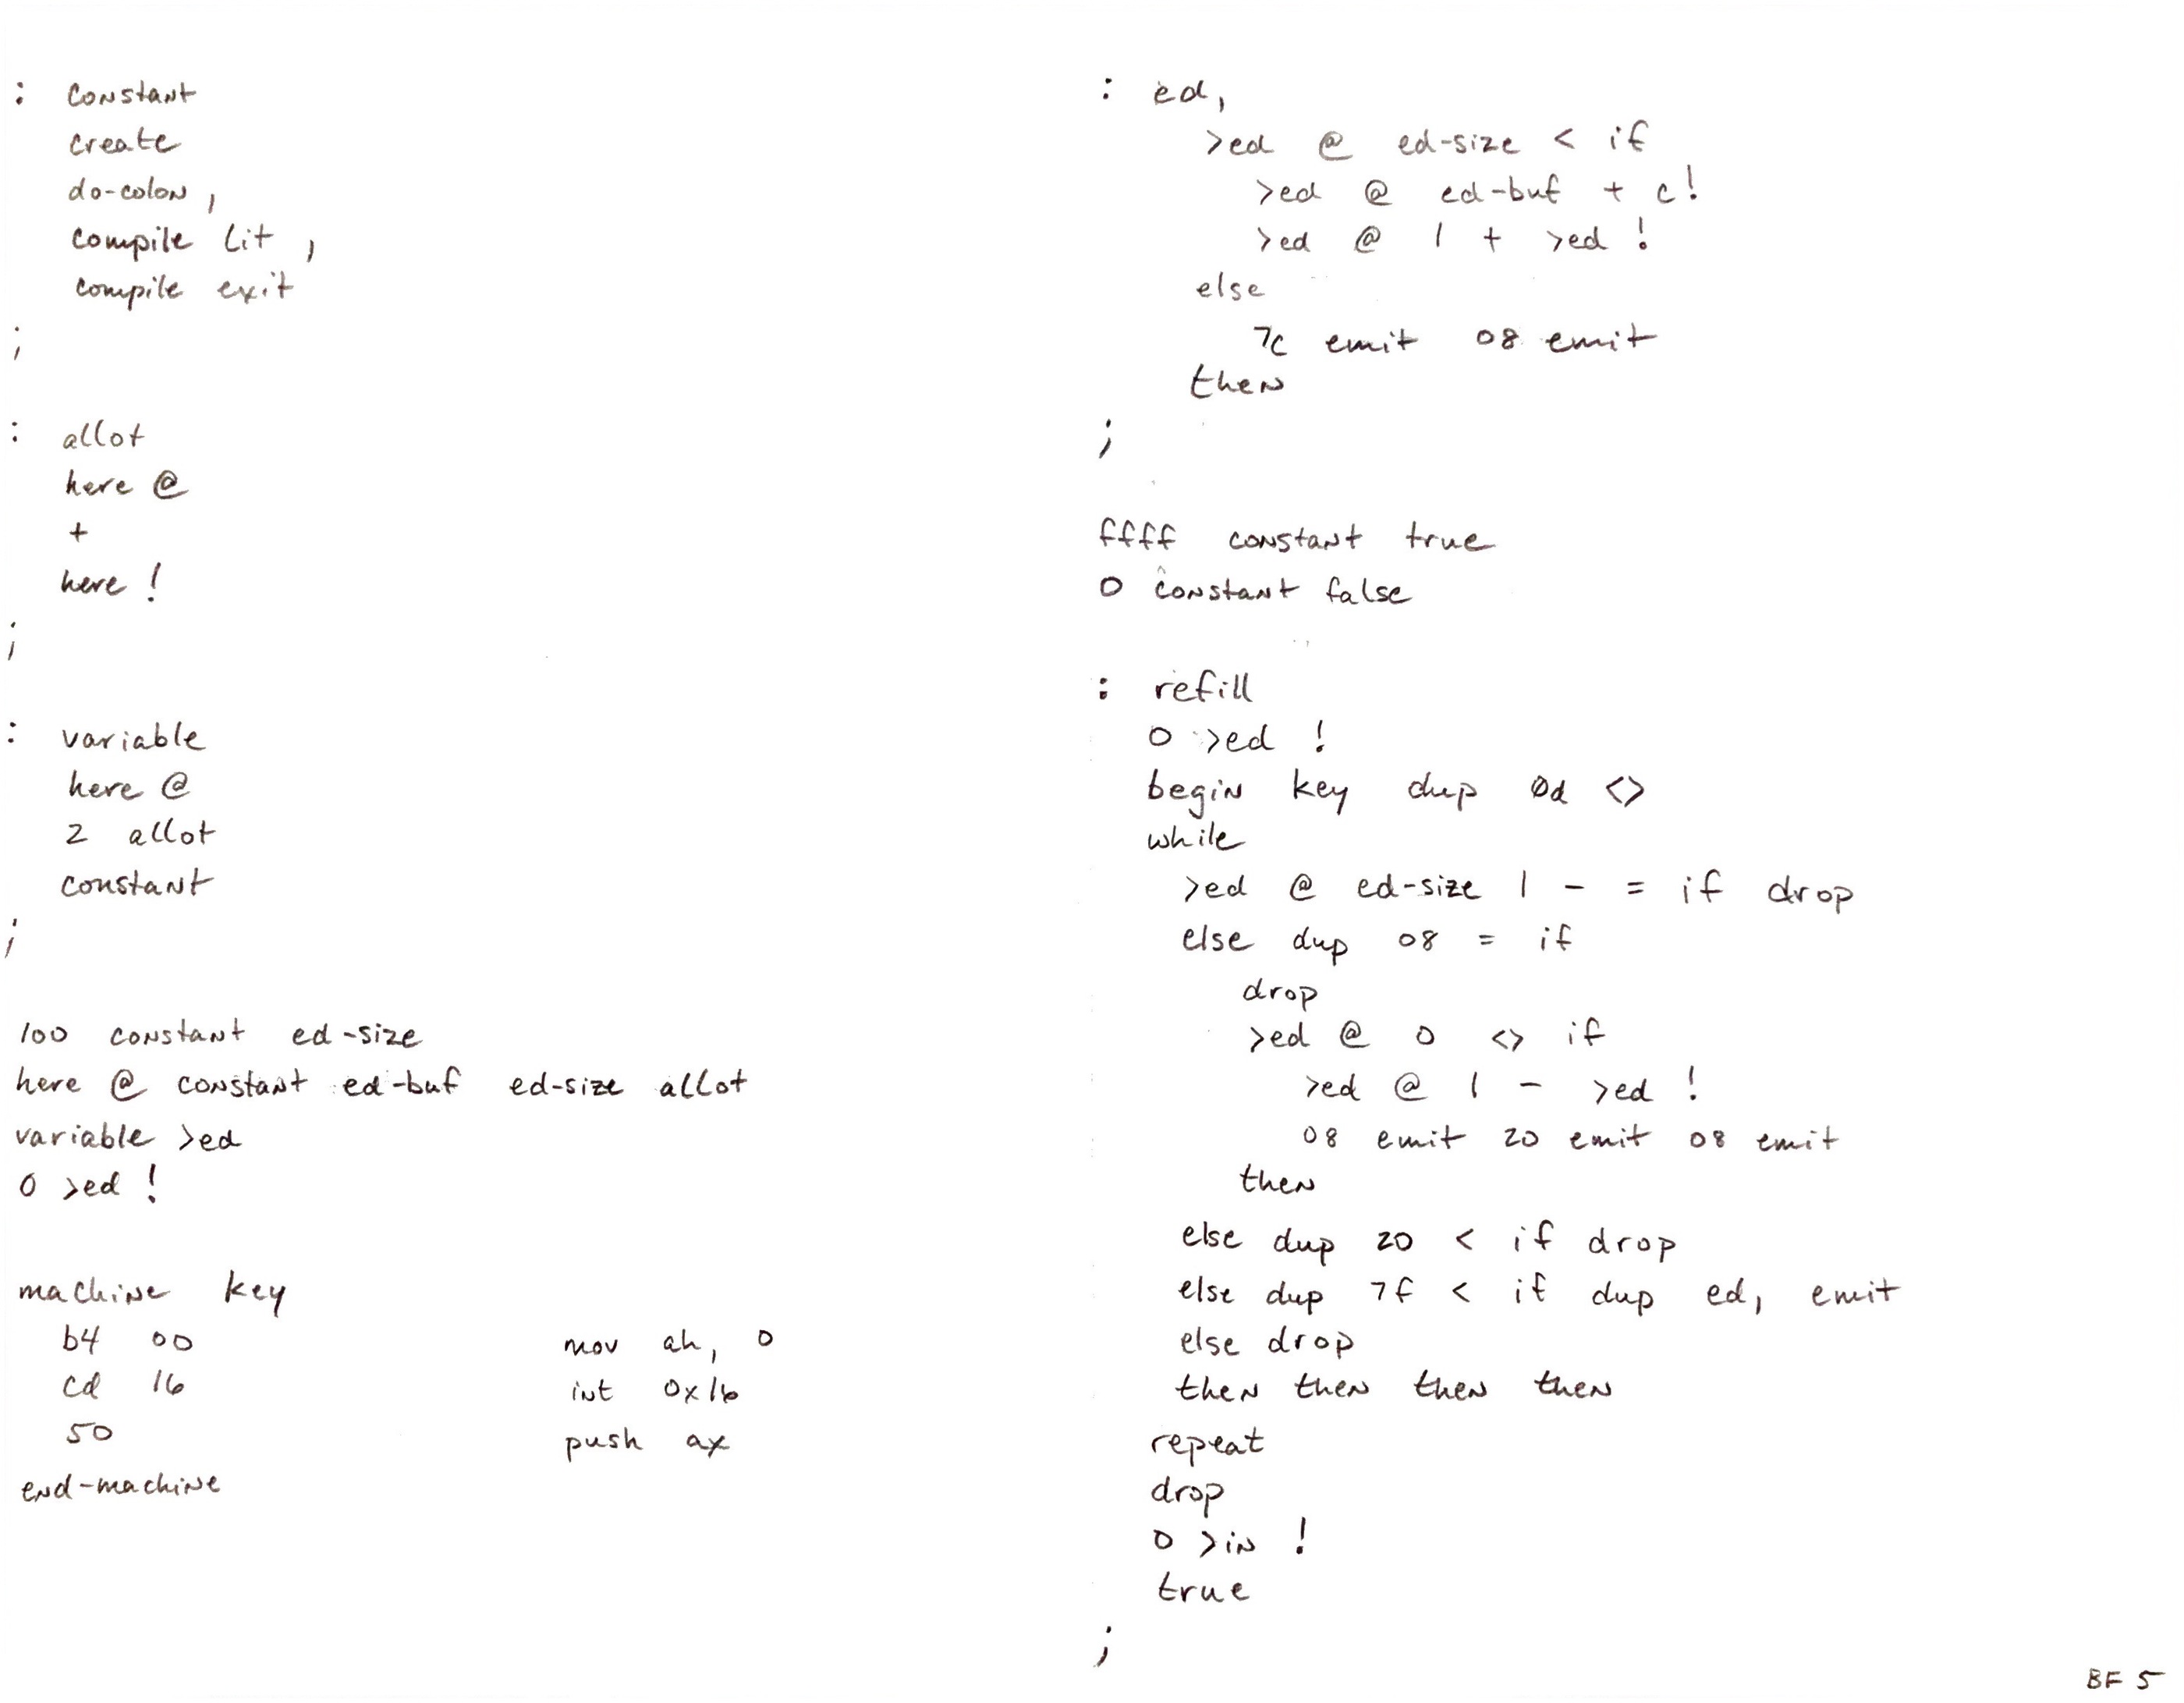 : constant
create
do-colon ,
compile lit ,
compile exit
;
: allot
here @
+
here !
;
: variable
here @
2 allot
constant
;
100 constant ed-size
here @ constant ed-buf ed-size allot
variable >ed
0 >ed !
machine key
b4 00 mov ah, 0
cd 16 int 0x16
50 push ax
end-machine
: ed,
>ed @ ed-size < if
>ed @ ed-buf + c!
>ed @ 1 + >ed !
else
7c emit 08 emit
then
;
ffff constant true
0 constant false
: refill
0 >ed !
begin key dup 0d <>
while
>ed @ ed-size 1 - = if drop
else dup 08 = if
drop
>ed @ 0 <> if
>ed @ 1 - >ed !
08 emit 20 emit 08 emit
then
else dup 20 < if drop
else dup 7f < if dup ed, emit
else drop
then then then then
repeat
drop
0 >in !
true
;
BF 5